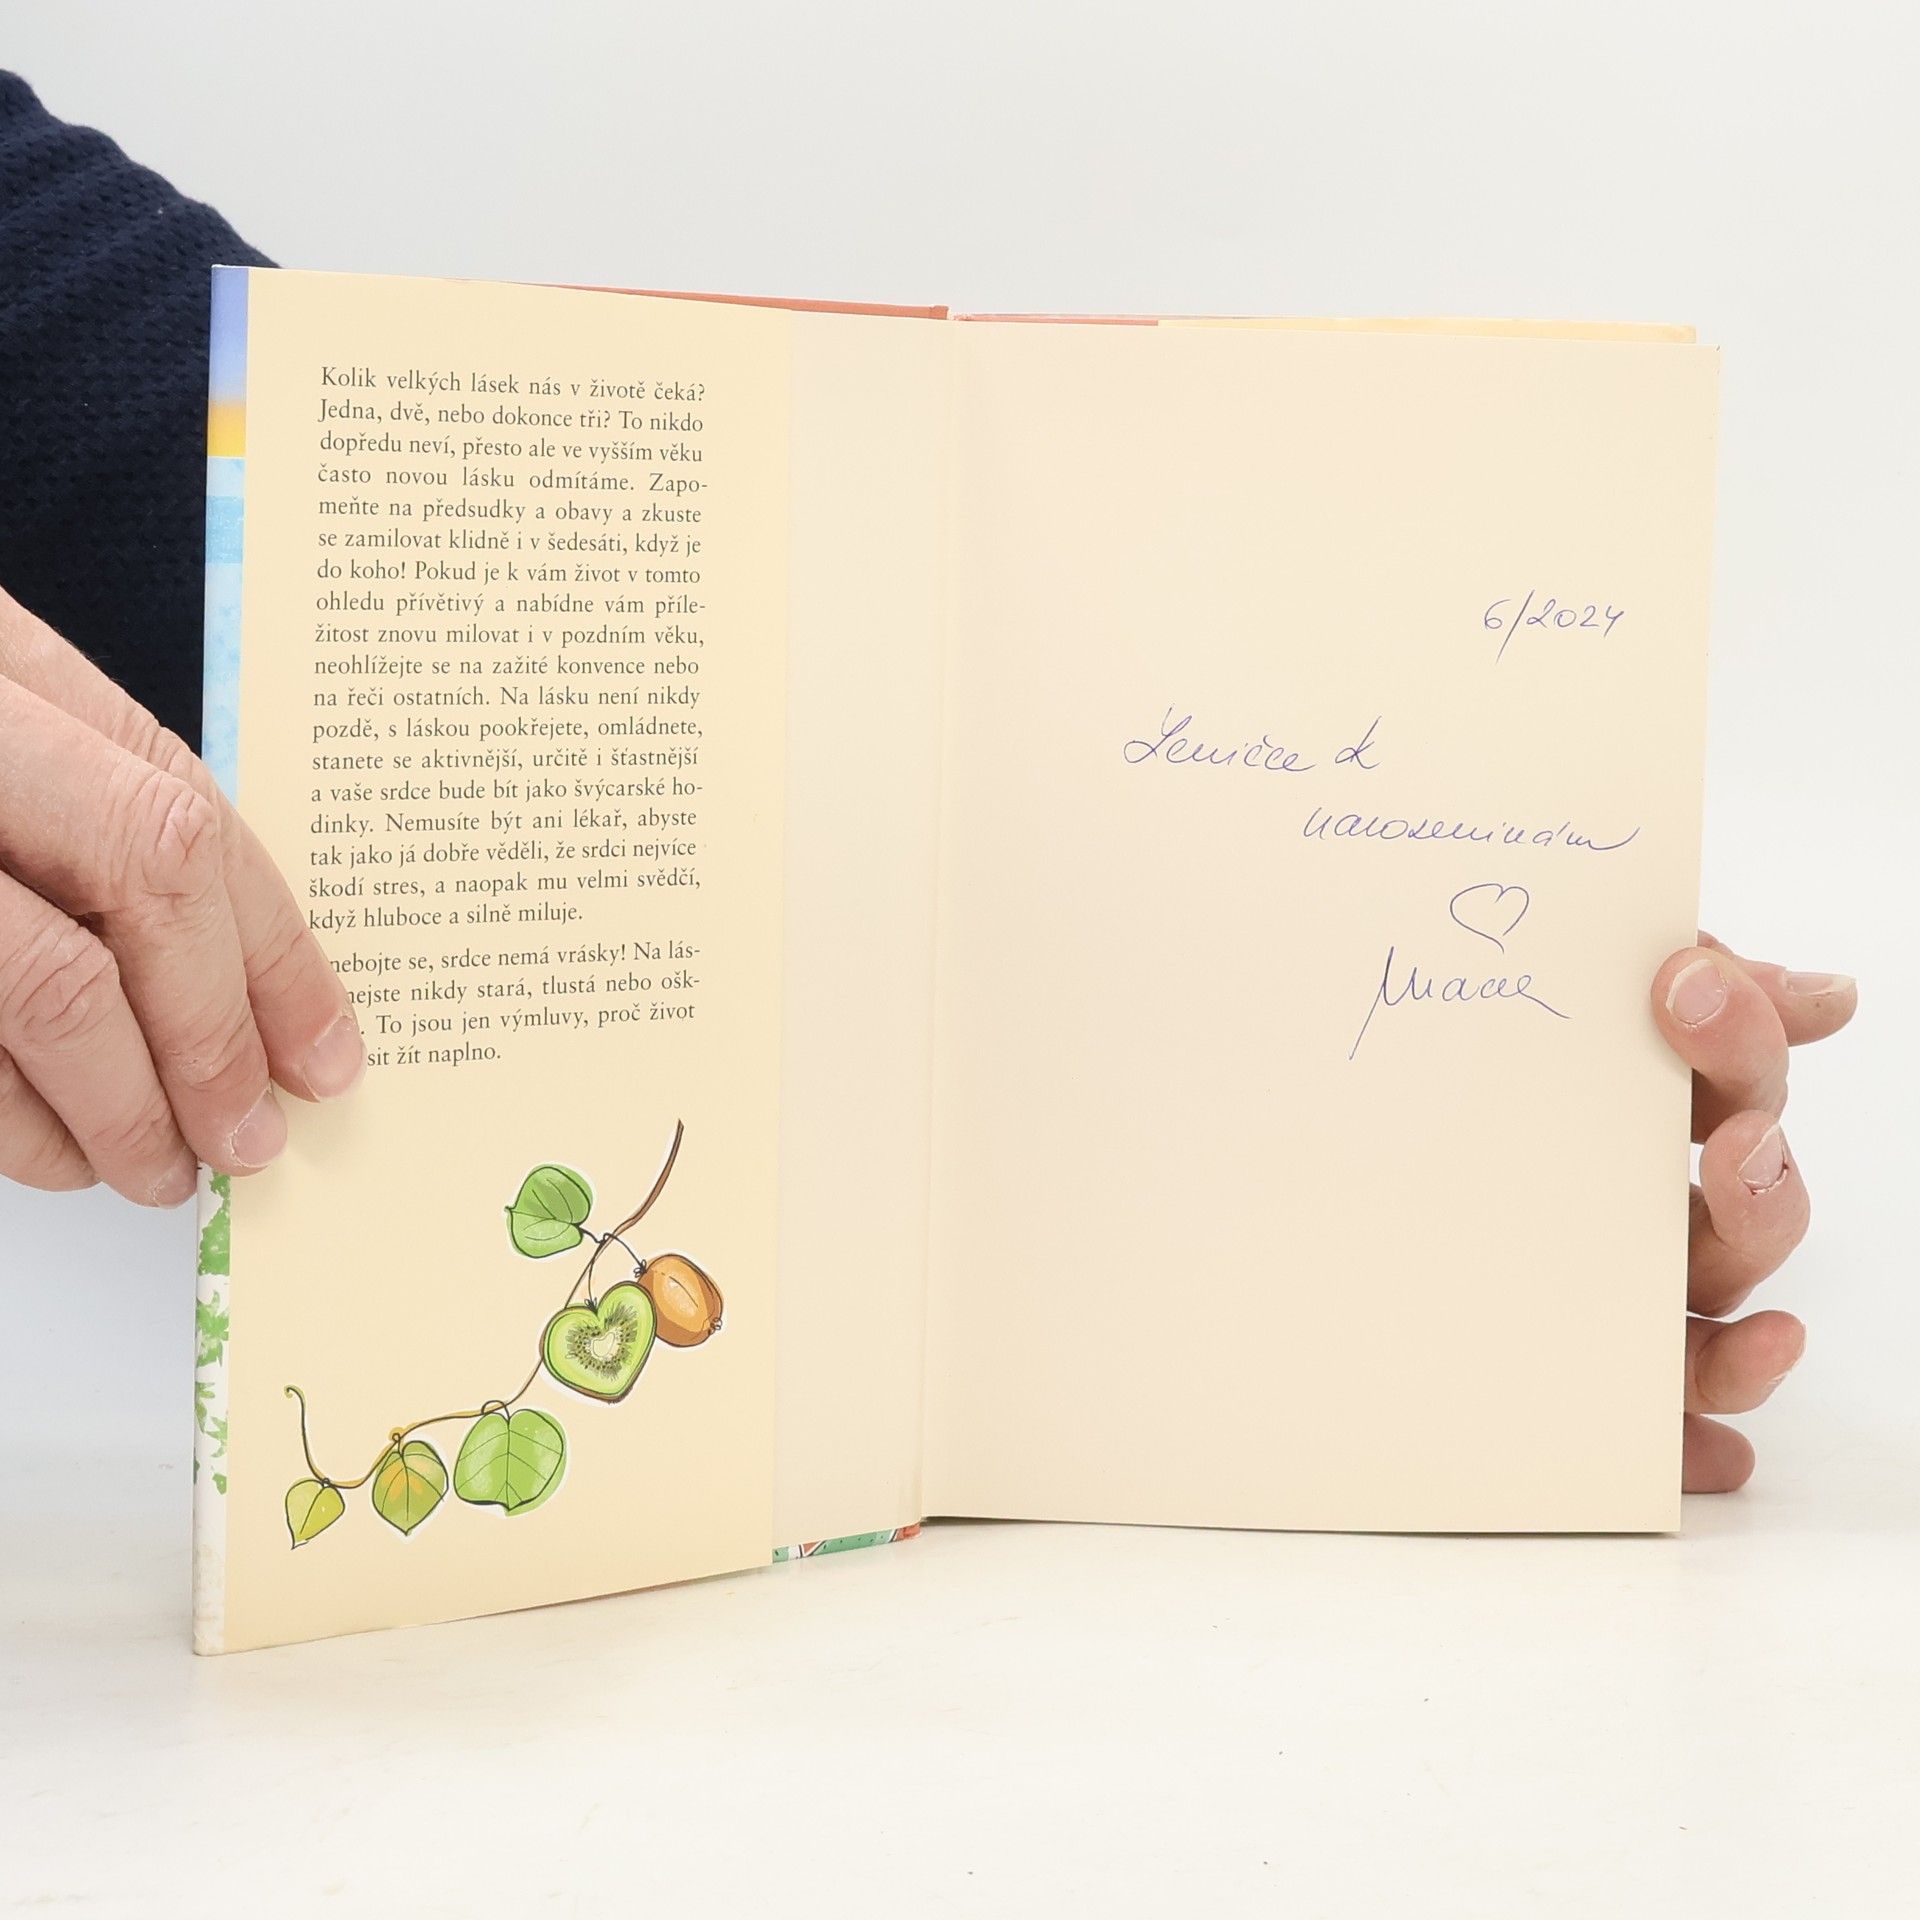 Kolik velkých lásek nás v životě čeká?
Jedna, dvě, nebo dokonce tři? To nikdo
dopředu neví, přesto ale ve vyšším věku
často novou lásku odmítáme. Zapo-
meňte na předsudky a obavy a zkuste
se zamilovat klidně i v šedesáti, když je
do koho! Pokud je k vám život v tomto
ohledu přívětivý a nabídne vám příle-
žitost znovu milovat i v pozdním věku,
neohlížejte se na zažité konvence nebo
na řeči ostatních. Na lásku není nikdy
pozdě, s láskou pookřejete, omládnete,
stanete se aktivnější, určitě i šťastnější
a vaše srdce bude bít jako švýcarské ho-
dinky. Nemusíte být ani lékař, abyste
tak jako já dobře věděli, že srdci nejvíce
škodí stres, a naopak mu velmi svědčí,
když hluboce a silně miluje.
nebojte se, srdce nemá vrásky! Na lás-
nejste nikdy stará, tlustá nebo ošk-
. To jsou jen výmluvy, proč život
sit žít naplno.
6/2024
Leničce k
narozeninám